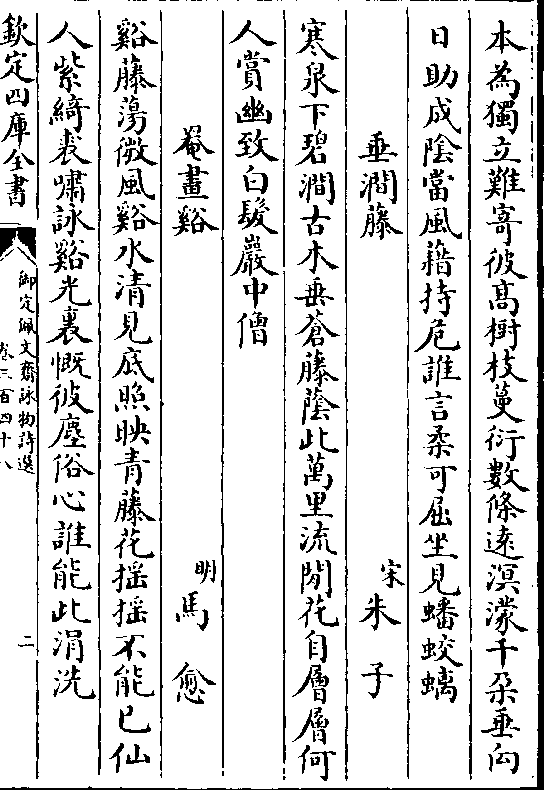 本為獨立難寄彼高樹枝蔓衍數條遠溟濛千朵垂向
日助成陰當風藉持危誰言柔可屈坐見蟠蛟螭
垂澗藤
宋朱子
寒泉下碧澗古木垂蒼藤蔭此萬里流閒花自層層何
人賞幽致白髮巖中僧
菴畫谿
明馬愈
谿藤蕩微風谿水清見底照映青藤花搖搖不能已仙
人紫綺裘嘯詠谿光裏慨彼塵俗心誰能此涓洗
欽定四庫全書
御定佩文齋詠物詩選
卷三百四十八
二